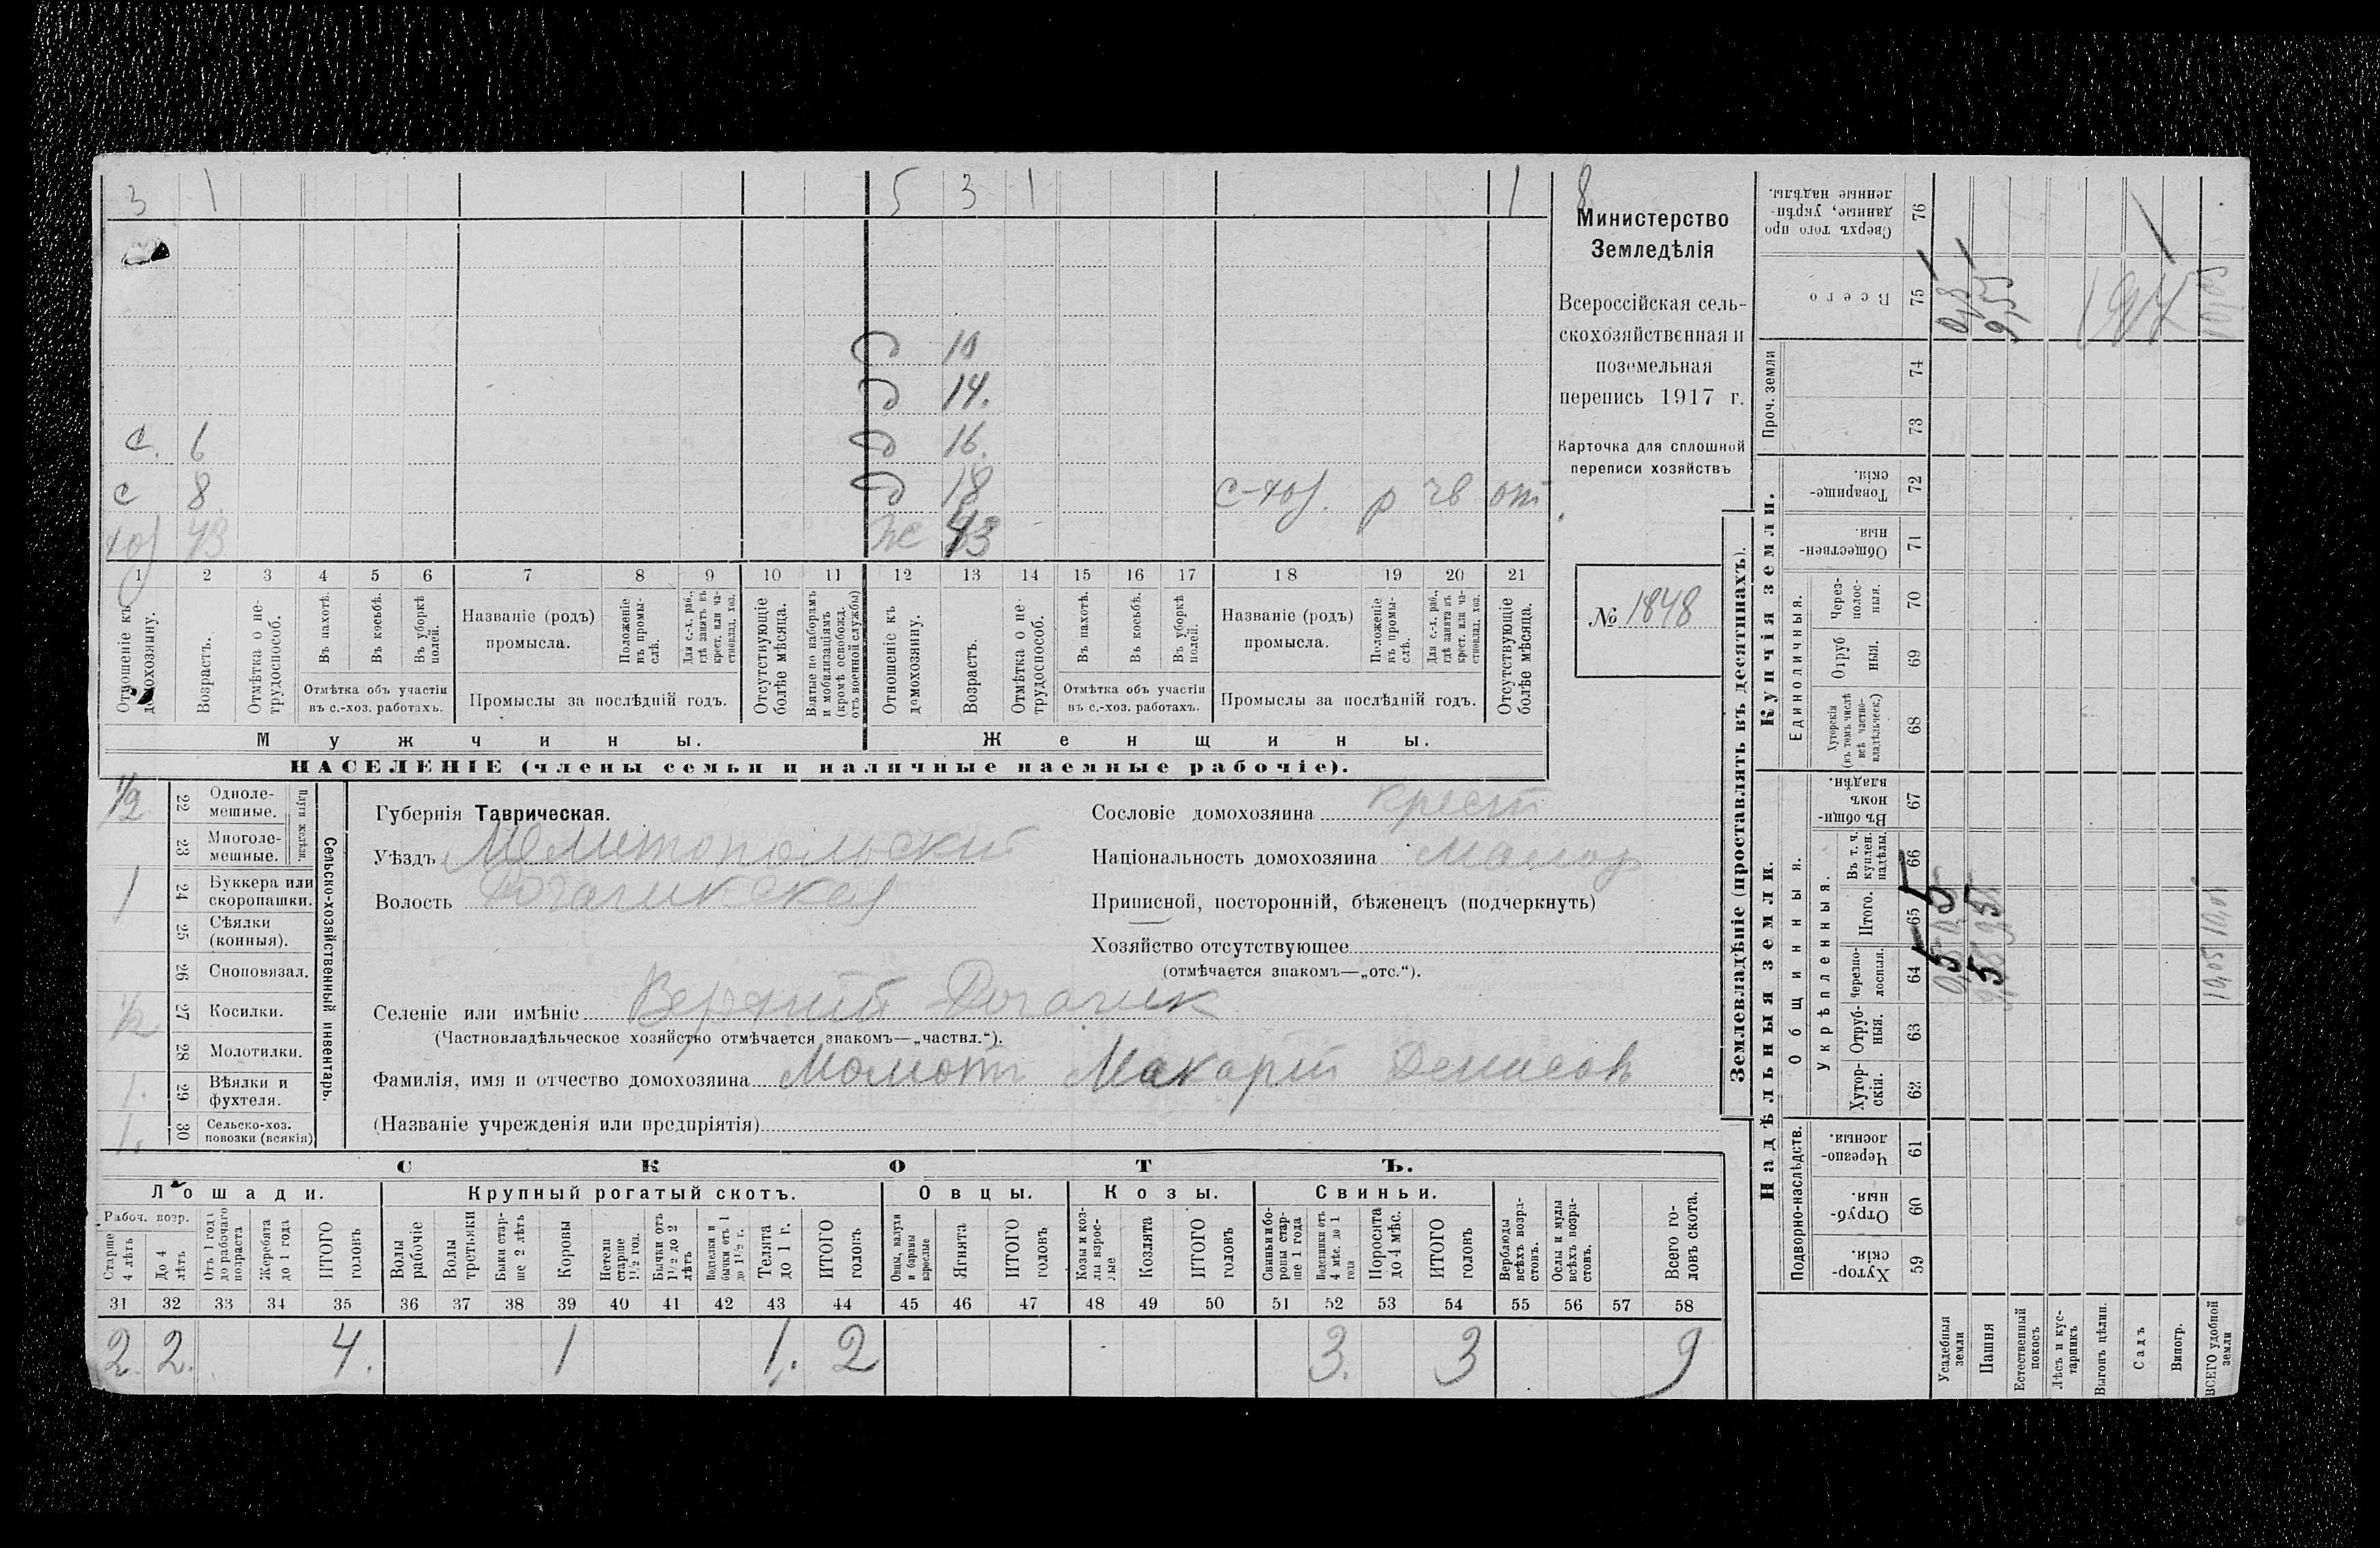 3 1 5 3 1 1 8
д 10
д 14.
с. 6 д 16.
с 8 д 18 с-хоз. р чв от
хоз 43 ж 43
1 2 3 4 5 6 7 8 9 10 11 12 13 14 15 16 17 18 19 20 21
Отношеніе къ домохозяину.
Возрастъ.
Отмѣтка о не-трудоспособ.
Въ пахотѣ.
Въ косьбѣ.
Въ уборкѣ полей.
Отмѣтка объ участіи
въ с.-хоз. работахъ.
Названіе (родъ)
промысла.
Положеніе въ промы-слѣ.
Для с.-х. раб., гдѣ занятъ въ крест. или ча-стновлад. хоз.
Промыслы за послѣдній годъ.
Отсутствующіе болѣе мѣсяца.
Взятые по наборамъ и мобилизаціямъ (кромѣ освобожд. отъ военной службы)
Отношеніе къ домохозяину.
Возрастъ.
Отмѣтка о не-трудоспособ.
Въ пахотѣ.
Въ косьбѣ.
Въ уборкѣ полей.
Отмѣтка объ участіи
въ с.-хоз. работахъ.
Названіе (родъ)
промысла.
Положеніе въ промы-слѣ.
Для с.-х. раб., гдѣ занята въ крест. или ча-стновлад. хоз.
Промыслы за послѣдній годъ.
Отсутствующіе болѣе мѣсяца.
Мужчины. Женщины.
НАСЕЛЕНІЕ (члены семьи и наличные наемные рабочіе).
Министерство
Земледѣлія
Всероссійская сель-
скохозяйственная и
поземельная
перепись 1917 г.
Карточка для сплошной
переписи хозяйствъ
№ 1848
Сельско-хозяйственный инвентарь.
Плуги желѣзн.
1/2 22 Одноле-мешные.
23 Многоле-мешные.
1 24 Буккера или скоропашки.
25 Сѣялки (конныя).
26 Сноповязал.
1/2 27 Косилки.
28 Молотилки.
1. 29 Вѣялки и фухтеля.
1. 30 Сельско-хоз. повозки (всякія)
Губернія Таврическая.
Уѣздъ Мелитопольскій
Волость Рогачикская
Сословіе домохозяина крест
Національность домохозяина малор
Приписной, посторонній, бѣженецъ (подчеркнуть)
Хозяйство отсутствующее
(отмѣчается знакомъ—„отс.“).
Селеніе или имѣніе Верхній Рогачик
(Частновладѣльческое хозяйство отмѣчается знакомъ—„частвл.“).
Фамилія, имя и отчество домохозяина Момотъ Макарій Денисовъ
(Названіе учрежденія или предпріятія)
СКОТЪ.
Лошади. Крупный рогатый скотъ. Овцы. Козы. Свиньи.
Рабоч. возр.
Старше 4 лѣтъ
До 4 лѣтъ
Отъ 1 года до рабочаго возраста
Жеребята до 1 года
ИТОГО головъ
Волы рабочіе
Волы третьяки
Быки стар-ше 2 лѣтъ
Коровы
Нетели старше 1 1/2 год.
Бычки отъ 1 1/2 до 2 лѣтъ
Подтелки и бычки отъ 1 до 1 1/2 г.
Телята до 1 г.
ИТОГО головъ
Овцы, валухи и бараны взрослые
Ягнята
ИТОГО головъ
Козы и коз-лы взрос-лые
Козлята
ИТОГО головъ
Свиньи и бо-ровы стар-ше 1 года
Подсвинки отъ 4 мѣс. до 1 года
Поросята до 4 мѣс.
ИТОГО головъ
Верблюды всѣхъ возра-стовъ.
Ослы и мулы всѣхъ возра-стовъ.
Всего го-ловъ скота.
31 32 33 34 35 36 37 38 39 40 41 42 43 44 45 46 47 48 49 50 51 52 53 54 55 56 57 58
2 2. 4. 1 1. 2 3. 3 9
Землевладѣніе (проставлять въ десятинахъ).
Надѣльныя земли. Купчія земли. Проч. земли
Подворно-наслѣдств. Общинныя. Укрѣпленныя. Единоличныя.
59 Хутор-скія.
60 Отруб-ныя.
61 Черезпо-лосныя.
62 Хутор-скія.
63 Отруб-ныя.
64 Черезпо-лосныя.
65 Итого.
66 Въ т. ч. куплен. надѣлы.
67 Въ общи-номъ владѣн.
68 Хуторскія (въ томъ числѣ всѣ частно-владѣльческ.)
69 Отруб ныя.
70 Через-полос-ныя.
71 Обществен-ныя.
72 Товарище-скія.
73
74
75 Всего
76 Сверхъ того про данные, укрѣп-ленные надѣлы.
Усадебныя земли 0,5
Пашня 9,55
Естественный покосъ
Лѣсъ и кус-тарникъ
Выгонъ цѣлин.
Садъ
Виногр.
ВСЕГО удобной земли 10,05 10,05